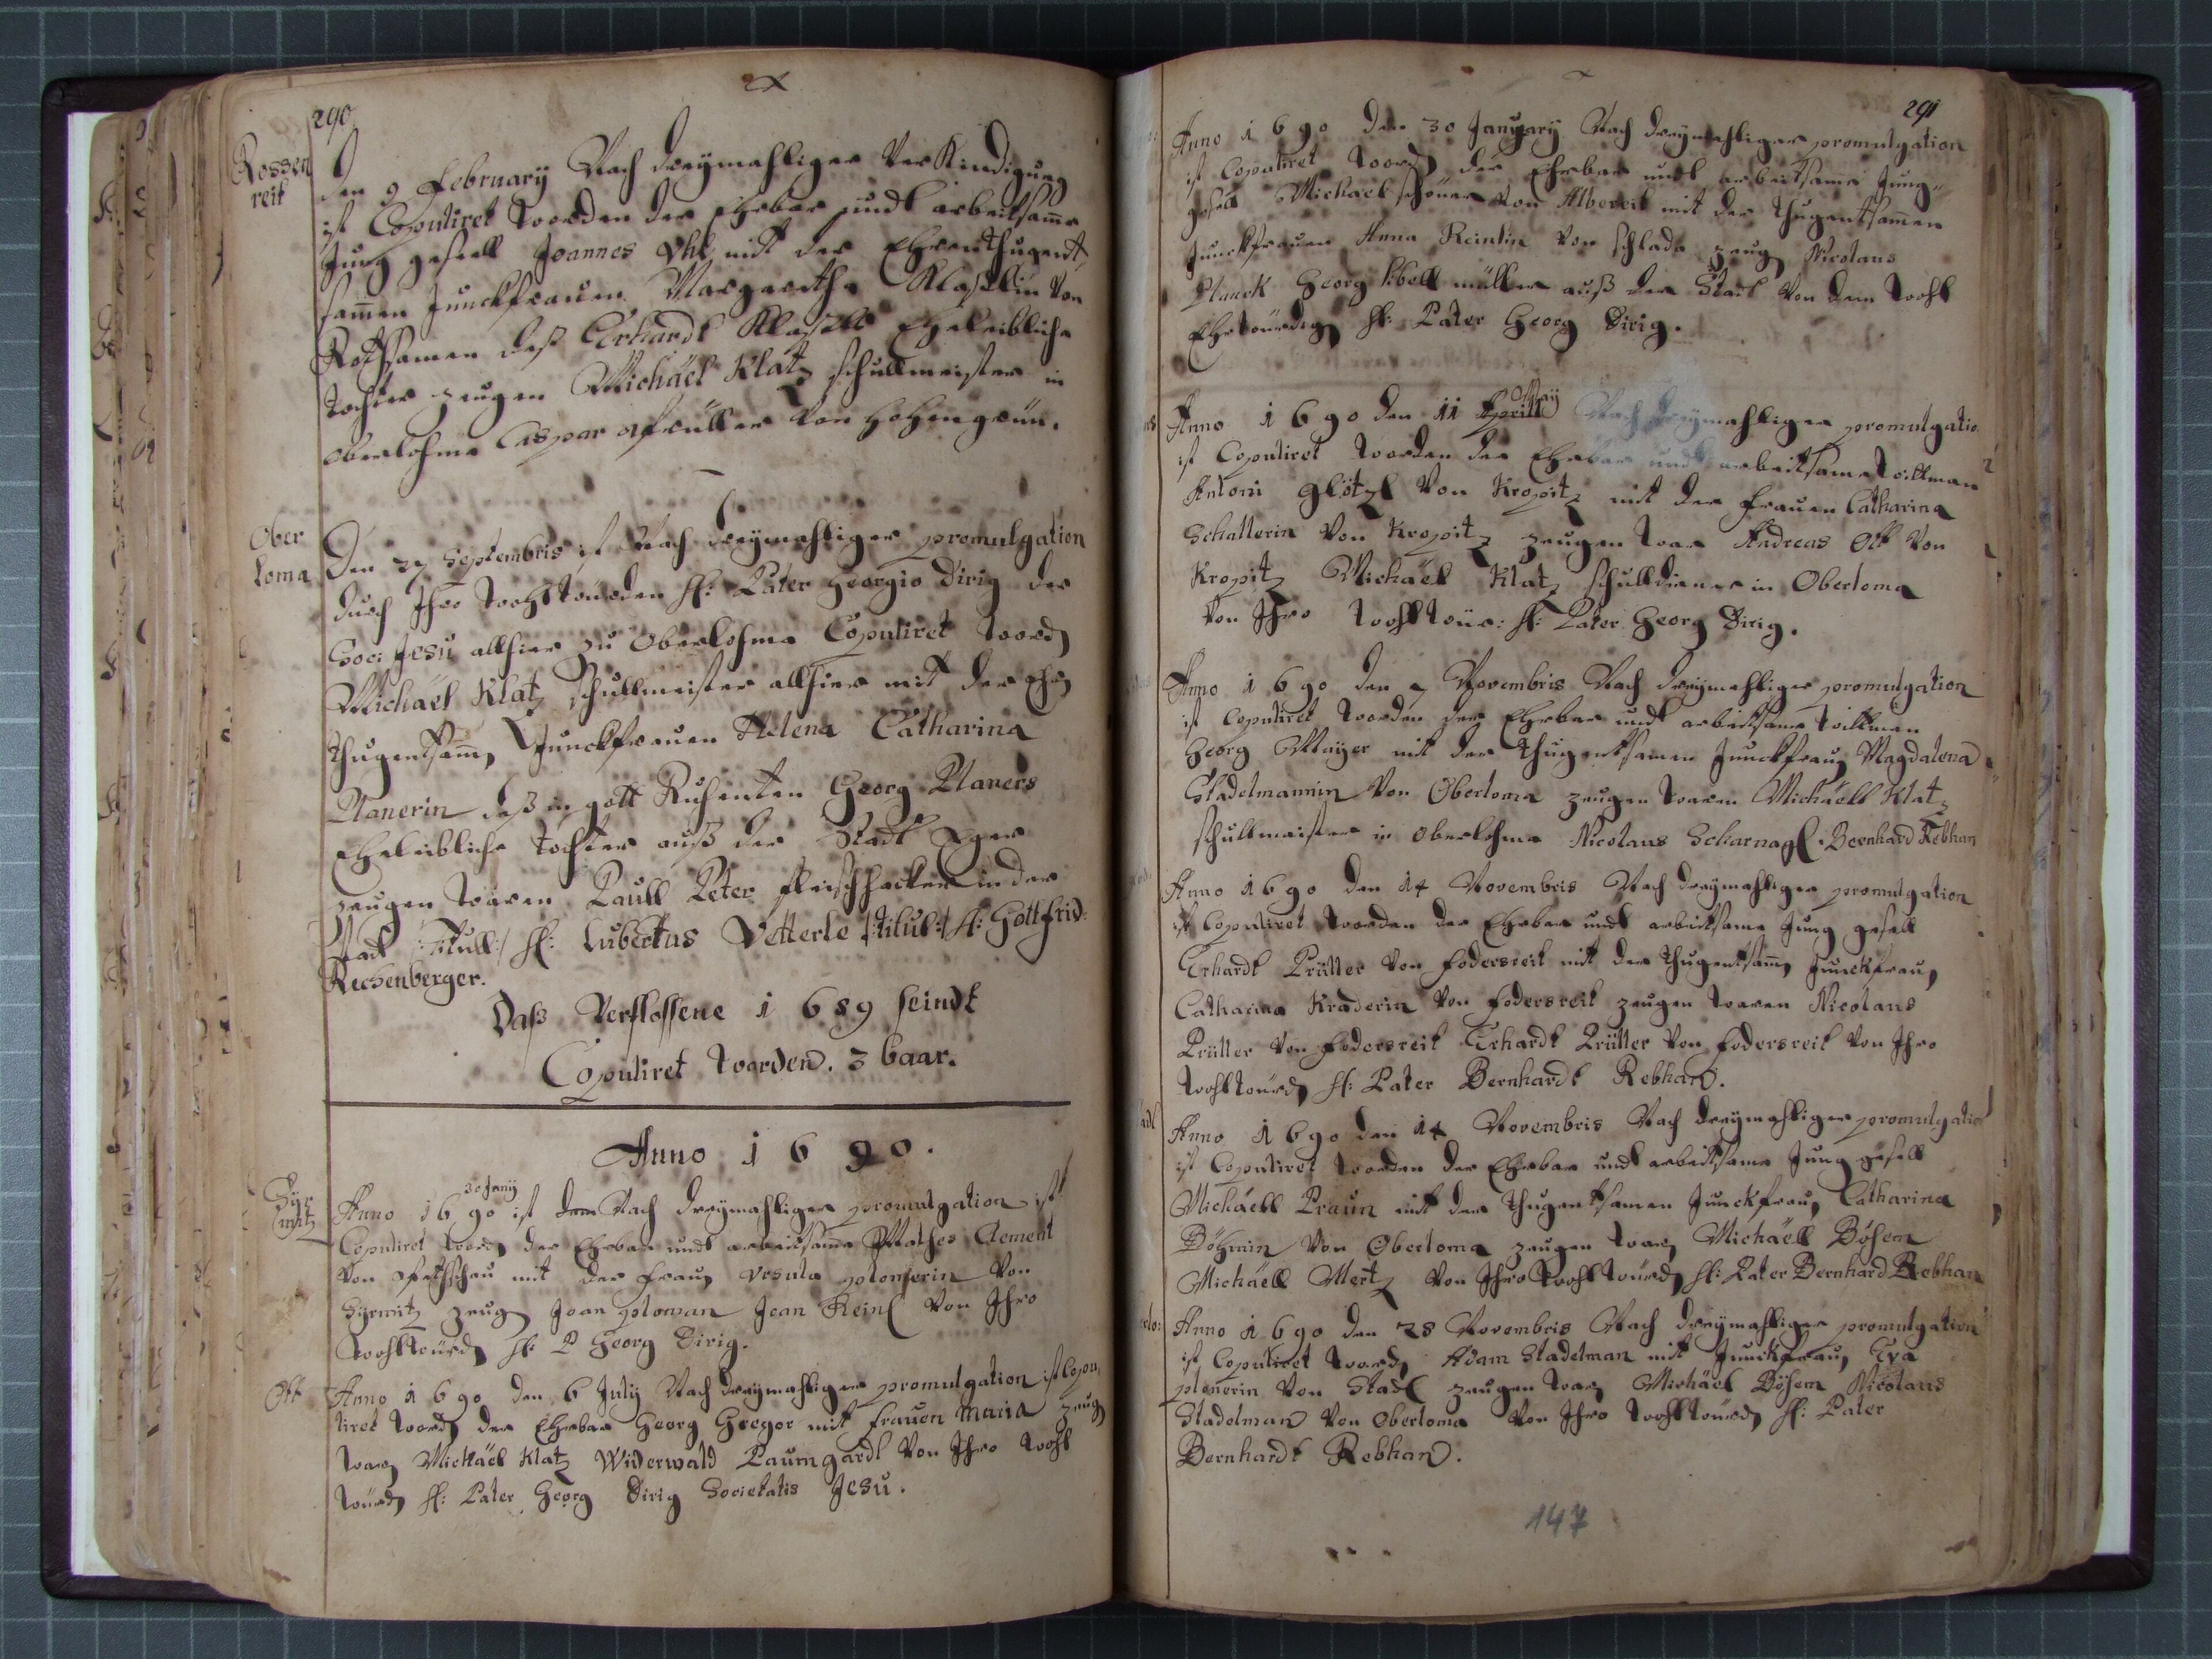 290
Rossen
reit
den 9 February Nach dreymahliger Verkindigung
ist Copuliret worden der Ehrbar undt arbeitsame
Jung gesell Joannes Uhl mit der Ehrenthugent
samen Junckfrauen Margaretha
des Erhardt Eheleibliche
tochter zeugen Michäel Klatz schullmeister in
oberlohma Caspar von Hohengrün.
Ober
loma
Den 27 Septembris ist Nach dreymahliger promulgation
durch Ihro wohlwürden H: Pater Georgio Dirig der
Soci: Jesu allhier zu Oberlohma Copuliret word
Michäel Klatz schullmeister allhier mit der
thugentsam Junckfrauen Helena Catharina
Planerin deß in gott Ruhenten Georg Planers
Eheleibliche tochter auß der Stadt Eger
zeugen waren Paull Peter fleischhacker in der
Stadt :titull:/ H: Lubertus Vetterle /:titul:/ H: Gottfrid:
Reichenberger.
Daß Verflossene 1689 seindt
Copuliret worden. 3 baar.
Anno 1690.
Sÿr
mitz
30 Jenny
Anno 1690 ist dem Nach dreymahliger promulgation ist
Copuliret word der Ehrbar undt arbeitsame Mathes Clement
von mit der frau Ursula von
Sÿrmitz zeug Joan plowan Jean Reinl von Ihro
wohlwürd H: P Georg Dirig.
Ott
Anno 1690 den 6 July Nach dreymahliger promulgation ist Copu
liret word der Ehrbar Georg Gregor mit frauen Maria zeug
war Michäel Klatz Widerwald Paumgardl von Ihro wohl
würd H: Pater Georg Dirig Societatis Jesu.
291
Anno 1690 den 30 January Nach dreymahliger promulgation
ist Copuliret word der Ehrbar undt arbeitsame Jung
gesell Michael schöner von Albereit mit der thugentsamen
Junckfrauen Anna Reinlin von schlada zeug Nicolaus
Planck Georg müller auß der Stadt von dem wohl
Ehrwürdig H: Pater Georg Dirig.
May
Anno 1690 den 11 Aprill Nach dreymahliger promulgatio
ist Copuliret worden der Ehrbar undt arbeitsame wittman
Antoni Glötzl von Kropitz mit der frauen Catharina
Schallerin von Kropitz zeugen war Andreas Ott von
Kropitz Michäel Klatz schulldiener in Oberloma
von Ihro wohlwür: H: Pater Georg Dirig.
Anno 1690 den 7 Novembris Nach dreymahliger promulgation
ist Copuliret worden der Ehrbar undt arbeitsame wittman
Georg Mayer mit der thugentsamen Junckfrau Magdalena
Stadelmannin von Oberloma zeugen waren Michäell Klatz
schullmeister in oberlohma Nicolaus Scharnagl. Bernhard Rebhan
Anno 1690 den 14 Novembris Nach dreymahliger promulgation
ist Copuliret worden der Ehrbar undt arbeitsame Jung gesell
Erhardt Prütter von Fodersreit mit der thugentsam Junckfrau
Catharina Kraderin von Fodersreit zeugen waren Nicolaus
Prütter von Fodersreit Erhardt Prütter von Fodersreit von Ihro
wohlwürd H: Pater Bernhardt Rebhan.
Anno 1690 den 14 Novembris Nach dreymahliger promulgatio
ist Copuliret worden der Ehrbar undt arbeitsame Jung gesell
Michäell Praun mit der thugentsamen Junckfrau Catharina
Böhmin von Oberloma zeugen war Michäell Böhem
Michäell Mertz von Ihro wohlwürd H: Pater Bernhard Rebhan
Anno 1690 den 28 Novembris Nach dreymahliger promulgation
ist Copuliret word Adam Stadelman mit Junckfrau Eva
plonerin von Stadl zeugen war Michäel Böhem Nicolaus
Stadelman von Oberloma von Ihro wohlwürd H: Pater
Bernhardt Rebhan.
147